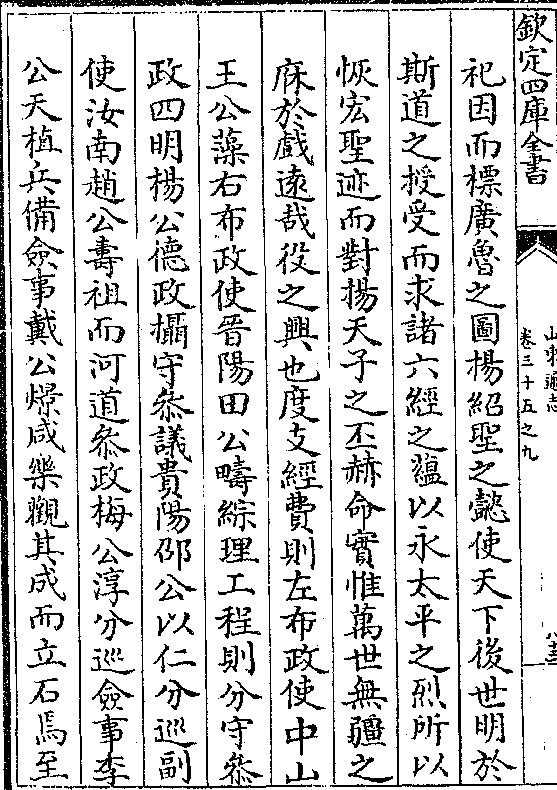 欽定四庫全書
山東通志
卷三十五之九
祀因而標廣魯之圖揚紹聖之懿使天下後世明於
斯道之授受而求諸六經之藴以永太平之烈所以
恢宏聖迹而對揚天子之丕赫命實惟萬世無疆之
庥於戲逺哉役之興也度支經費則左布政使中山
王公藻右布政使晉陽田公疇綜理工程則分守叅
政四明楊公德政攝守叅議貴陽邵公以仁分巡副
使汝南趙公壽祖而河道叅政梅公淳分巡僉事李
公天植兵備僉事戴公燝咸樂觀其成而立石焉至